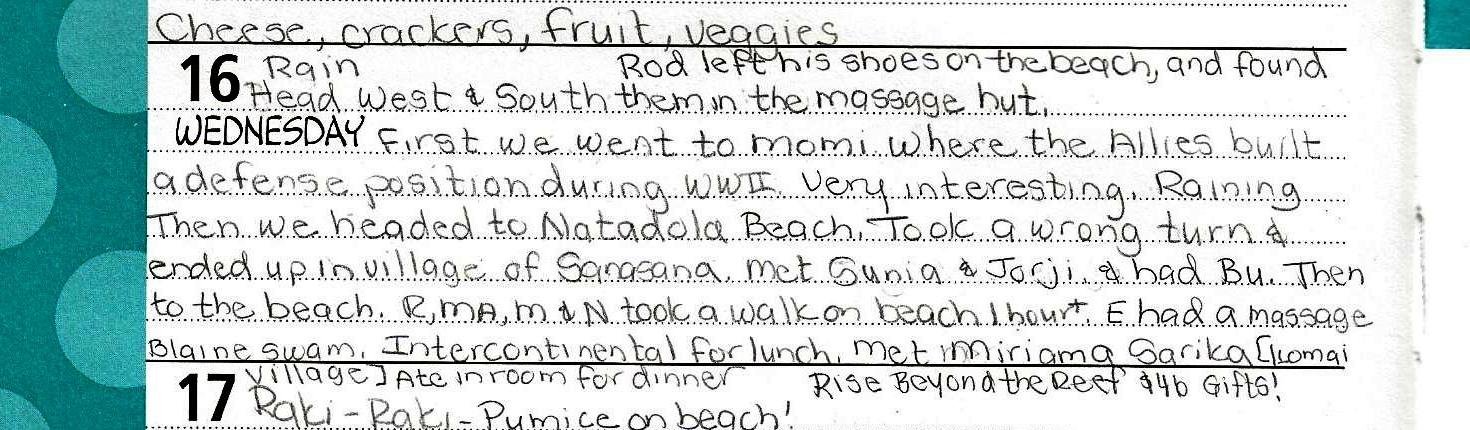 Cheese, crackers, fruit, veggies
16 Rain Rod left his shoes on the beach, and found
Head West & South them in the massage hut.
WEDNESDAY First we went to Momi where the Allies built
a defense position during WWII. Very interesting. Raining
Then we headed to Natadola Beach. Took a wrong turn &
ended up in village of Sanasana. Met Sunia & Jorji. & had Bu. Then
to the beach. R, MA, M & N took a walk on beach 1 hour+. E had a massage
Blaine swam. Intercontinental for lunch. Met Miriama Sarika [komai
village] Ate in room for dinner Rise Beyond the Reef $46 Gifts!
17 Raki-Raki-Pumice on beach!